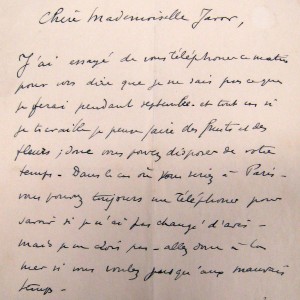 Chère Mademoiselle Javor,
J'ai essayé de vous téléphoner ce matin
pour vous dire que je ne sais pas ce que
je ferai pendant septembre. et tout cas si
je travaille je peux faire des fruits et des
fleurs; donc vous pouvez disposer de votre
temps - Dans le cas où vous seriez à Paris -
vous pouvez toujours me téléphoner pour
savoir si je n'ai pas changé d'avis -
mais je ne crois pas - allez donc à la
mer si vous voulez jusqu'aux mauvais
temps -